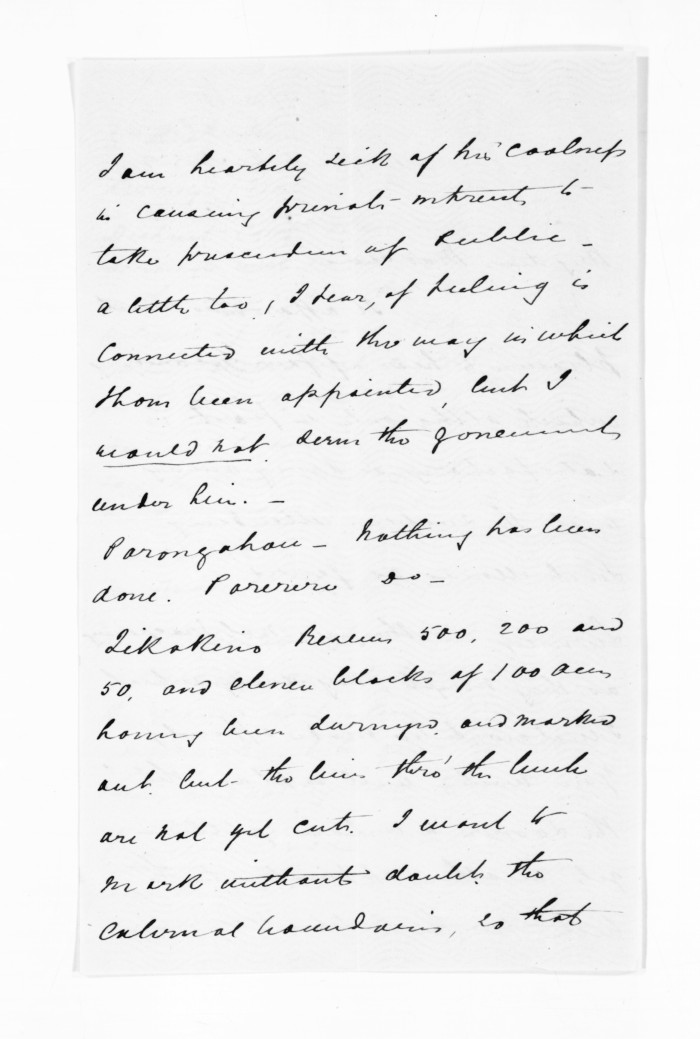 I am heartily sick of his coolness
in causing private interests to
take precedence of Public –
a little too, I fear, of feeling is
connected with the way in which
been appointed, but I
would not serve the Government
under him. –
Porongahau – Nothing has been
done. Pourerere Do –
Tikokino Reserves 500, 200 and
50, and eleven blocks of 100 acres
having been surveyed and marked
out. but the lines thro' the bush
are not yet cut. I want to
mark without doubt the
external boundaries, so that